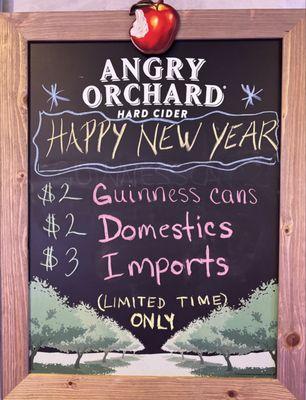 ANGRY
ORCHARD
HARD CIDER
HAPPY NEW YEAR
$2 Guinness cans
$2 Domestics
$3 Imports
(LIMITED TIME)
ONLY